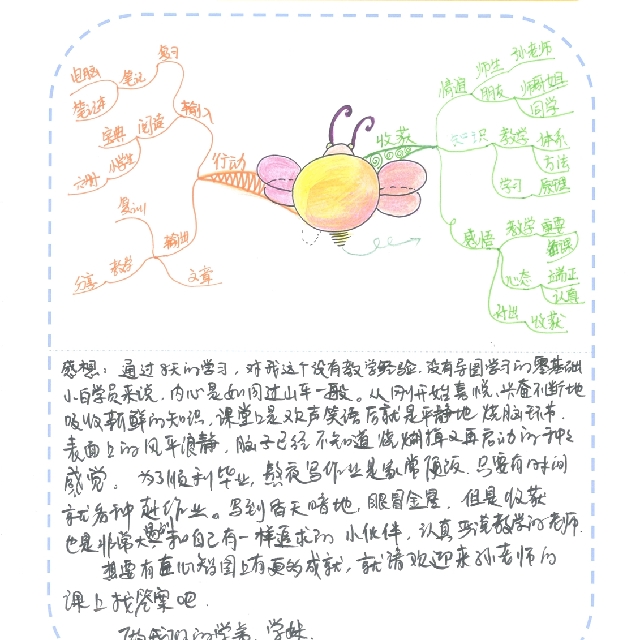 复习
电脑
笔记
笔记本
输入
宝典
阅读
小学生
行动
复训
输出
教者
分享
文章
收获
情谊
师生
孙老师
朋友
师哥女姐
同学
知识
教学
体系
方法
学习
原理
感悟
教学
重要
备课
心态
端正
认真
付出
收获
感想：通过8天的学习，对我这个没有教学经验，没有导图学习的零基础
小白学员来说，内心是如同过山车一般。从刚开始喜悦、兴奋不断地
吸收新鲜的知识，课堂上是欢声笑语后就是平静地烧脑环节，
表面上的风平浪静，脑子已经不知道烧糊掉又再启动的种种
感觉。为了顺利毕业，熬夜写作业是家常便饭，只要有时间
就各种赶作业。写到昏天暗地，眼冒金星，但是收获
也是非常大，和自己有一样追求的小伙伴，认真严谨教学的老师。
想要有直心智图上有更的成就，就请欢迎来孙老师的
课上找答案吧。
的学弟、学妹